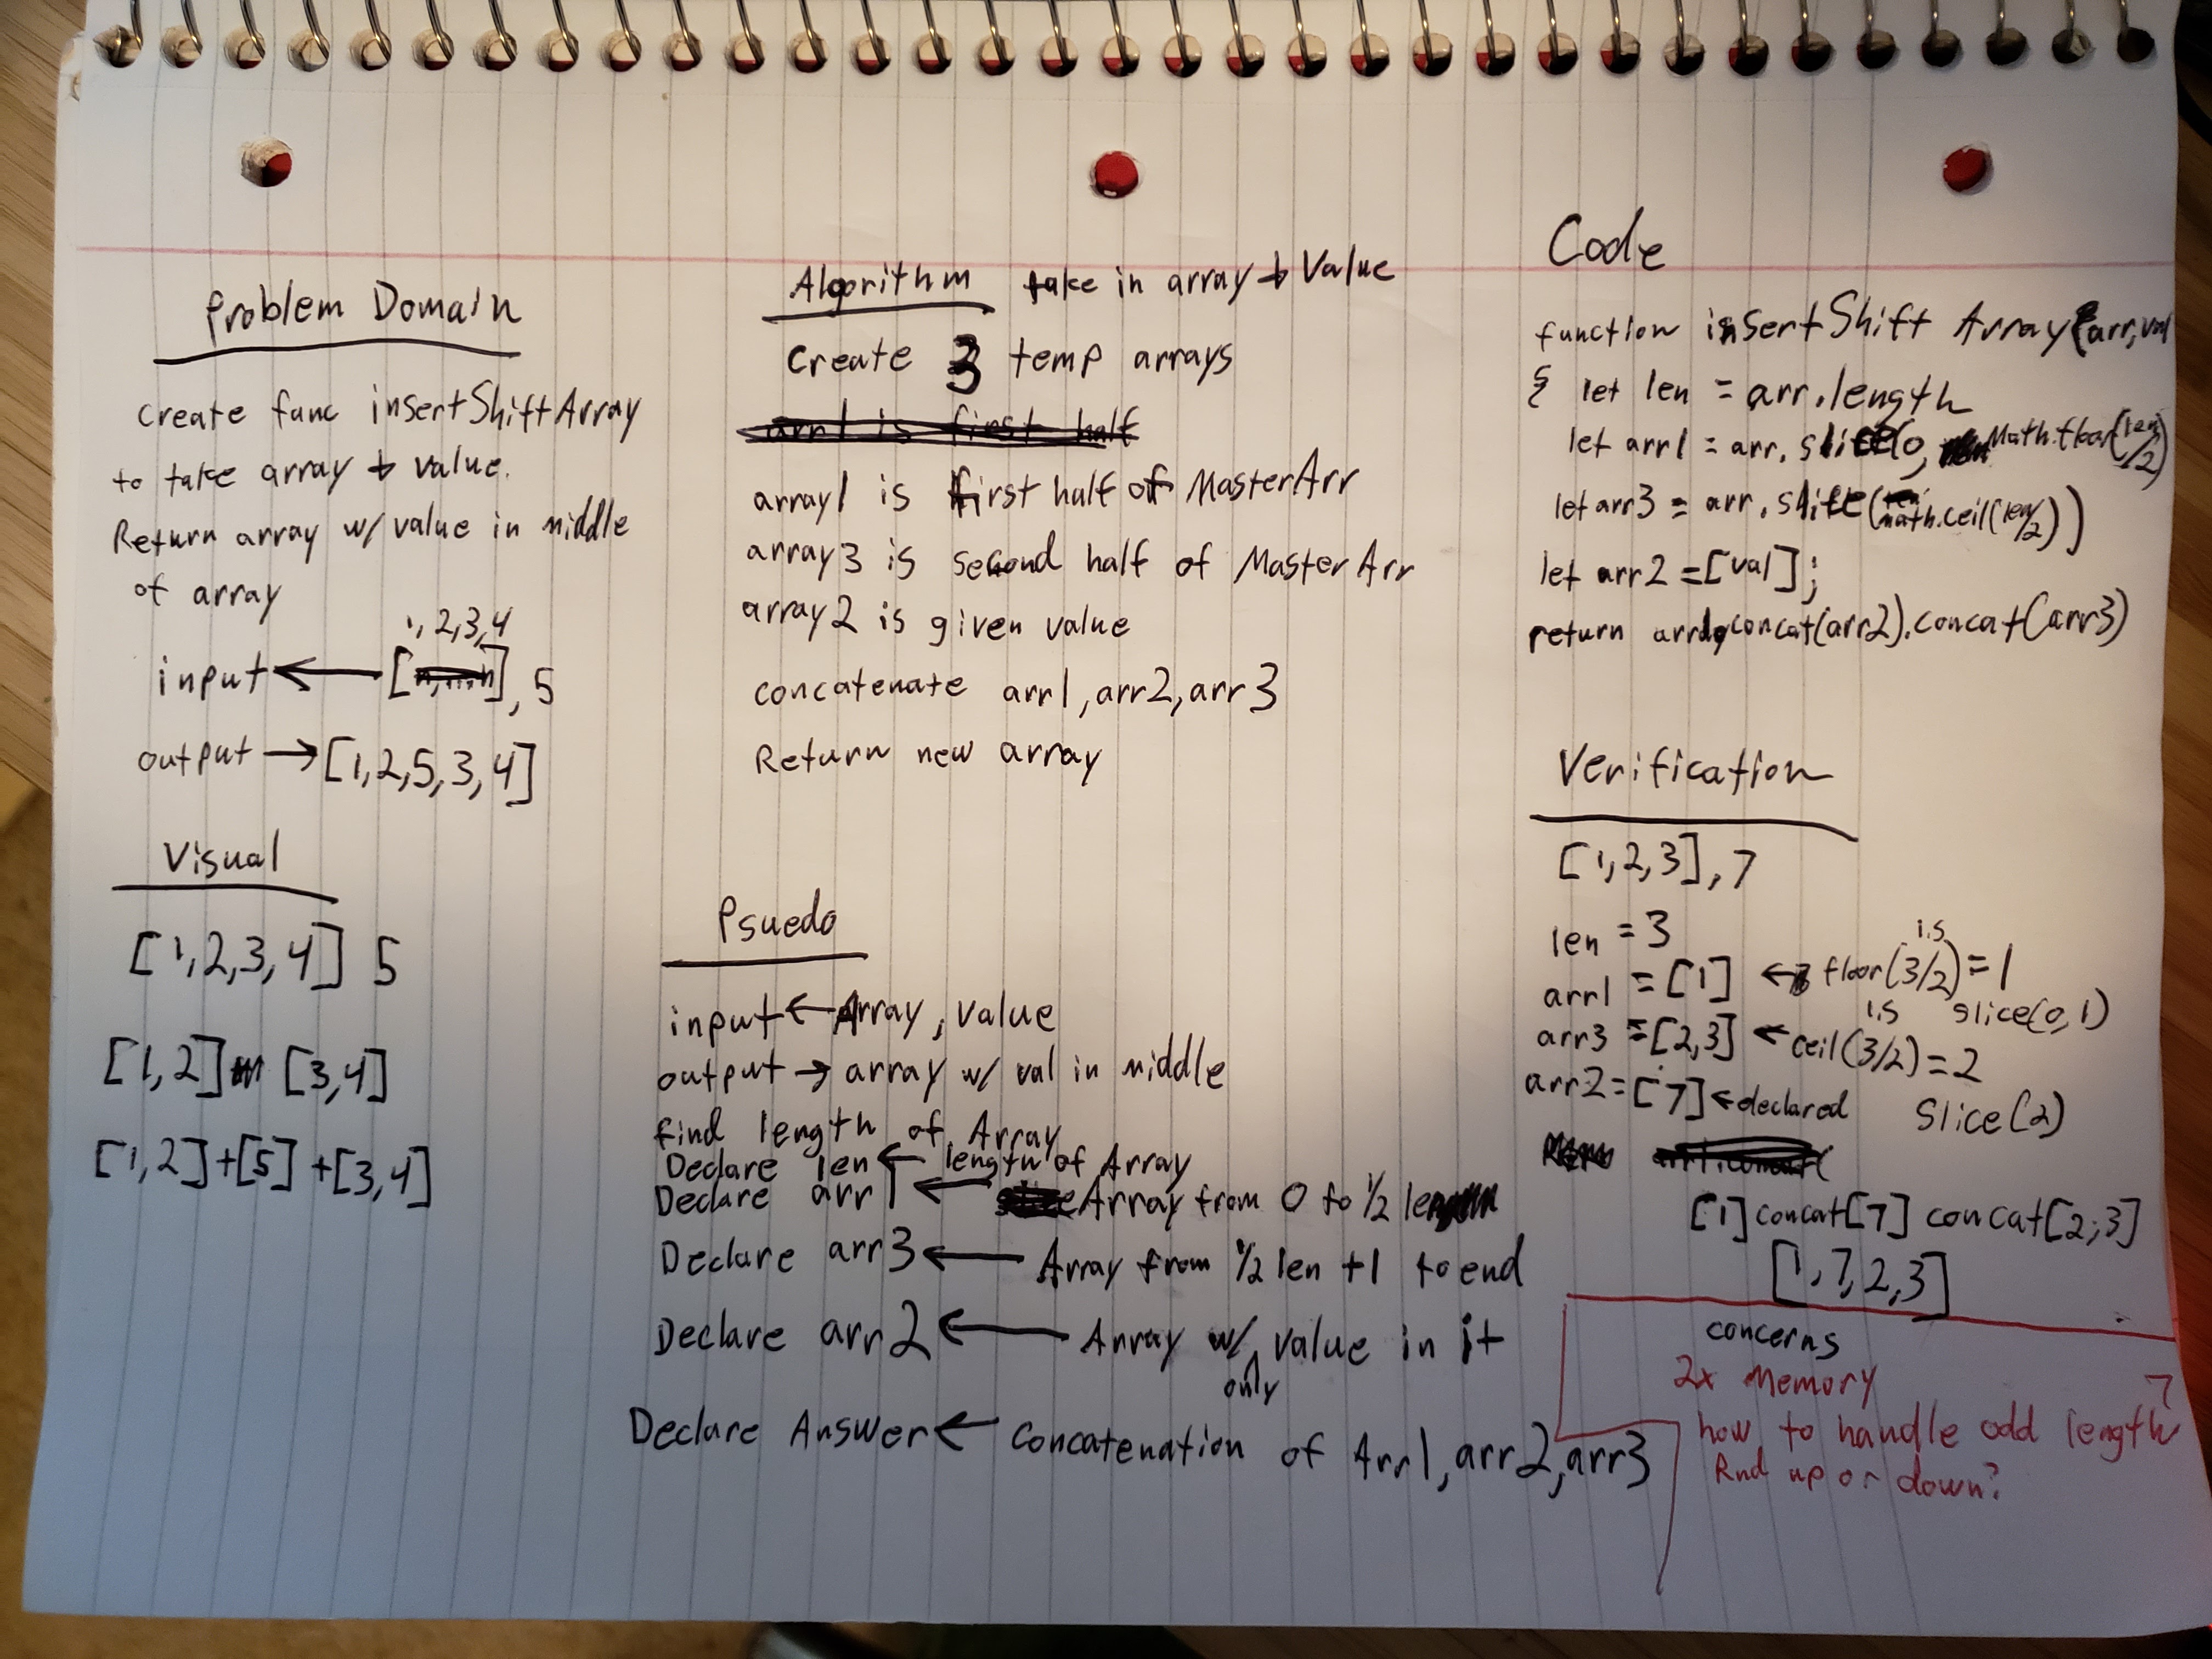 Problem Domain
create func insertShiftArray
to take array + value.
Return array w/ value in middle
of array
1, 2,3,4
input ← [n,...n], 5
output → [1,2,5,3,4]
Visual
[1,2,3,4] 5
[1,2] [3,4]
[1,2]+[5]+[3,4]
Algorithm take in array + Value
Create 3 temp arrays
arr1 is first half
array1 is first half of MasterArr
array3 is second half of MasterArr
array2 is given value
concatenate arr1, arr2, arr3
Return new array
Psuedo
input ← Array, value
output → array w/ val in middle
find length of Array
Declare len ← length of Array
Declare arr1 ← Array from 0 to 1/2 len
Declare arr3 ← Array from 1/2 len +1 to end
Declare arr2 ← Array w/ value in it
only
Declare Answer ← Concatenation of Arr1, arr2, arr3
Code
function insertShift Array(arr, val
{ let len = arr.length
let arr1 = arr.slice(0, Math.floor(len/2)
let arr3 = arr.slice(math.ceil(len/2))
let arr2 = [val];
return arr1.concat(arr2).concat(arr3)
Verification
[1,2,3], 7
len = 3
1.5
arr1 = [1] ← floor(3/2) = 1
1.5 slice(0,1)
arr3 = [2,3] ← ceil(3/2) = 2
arr2 = [7] ← declared slice(2)
arr1.concat(
[1] concat[7] concat[2,3]
[1,7,2,3]
concerns
2x Memory
how to handle odd length
Rnd up or down?